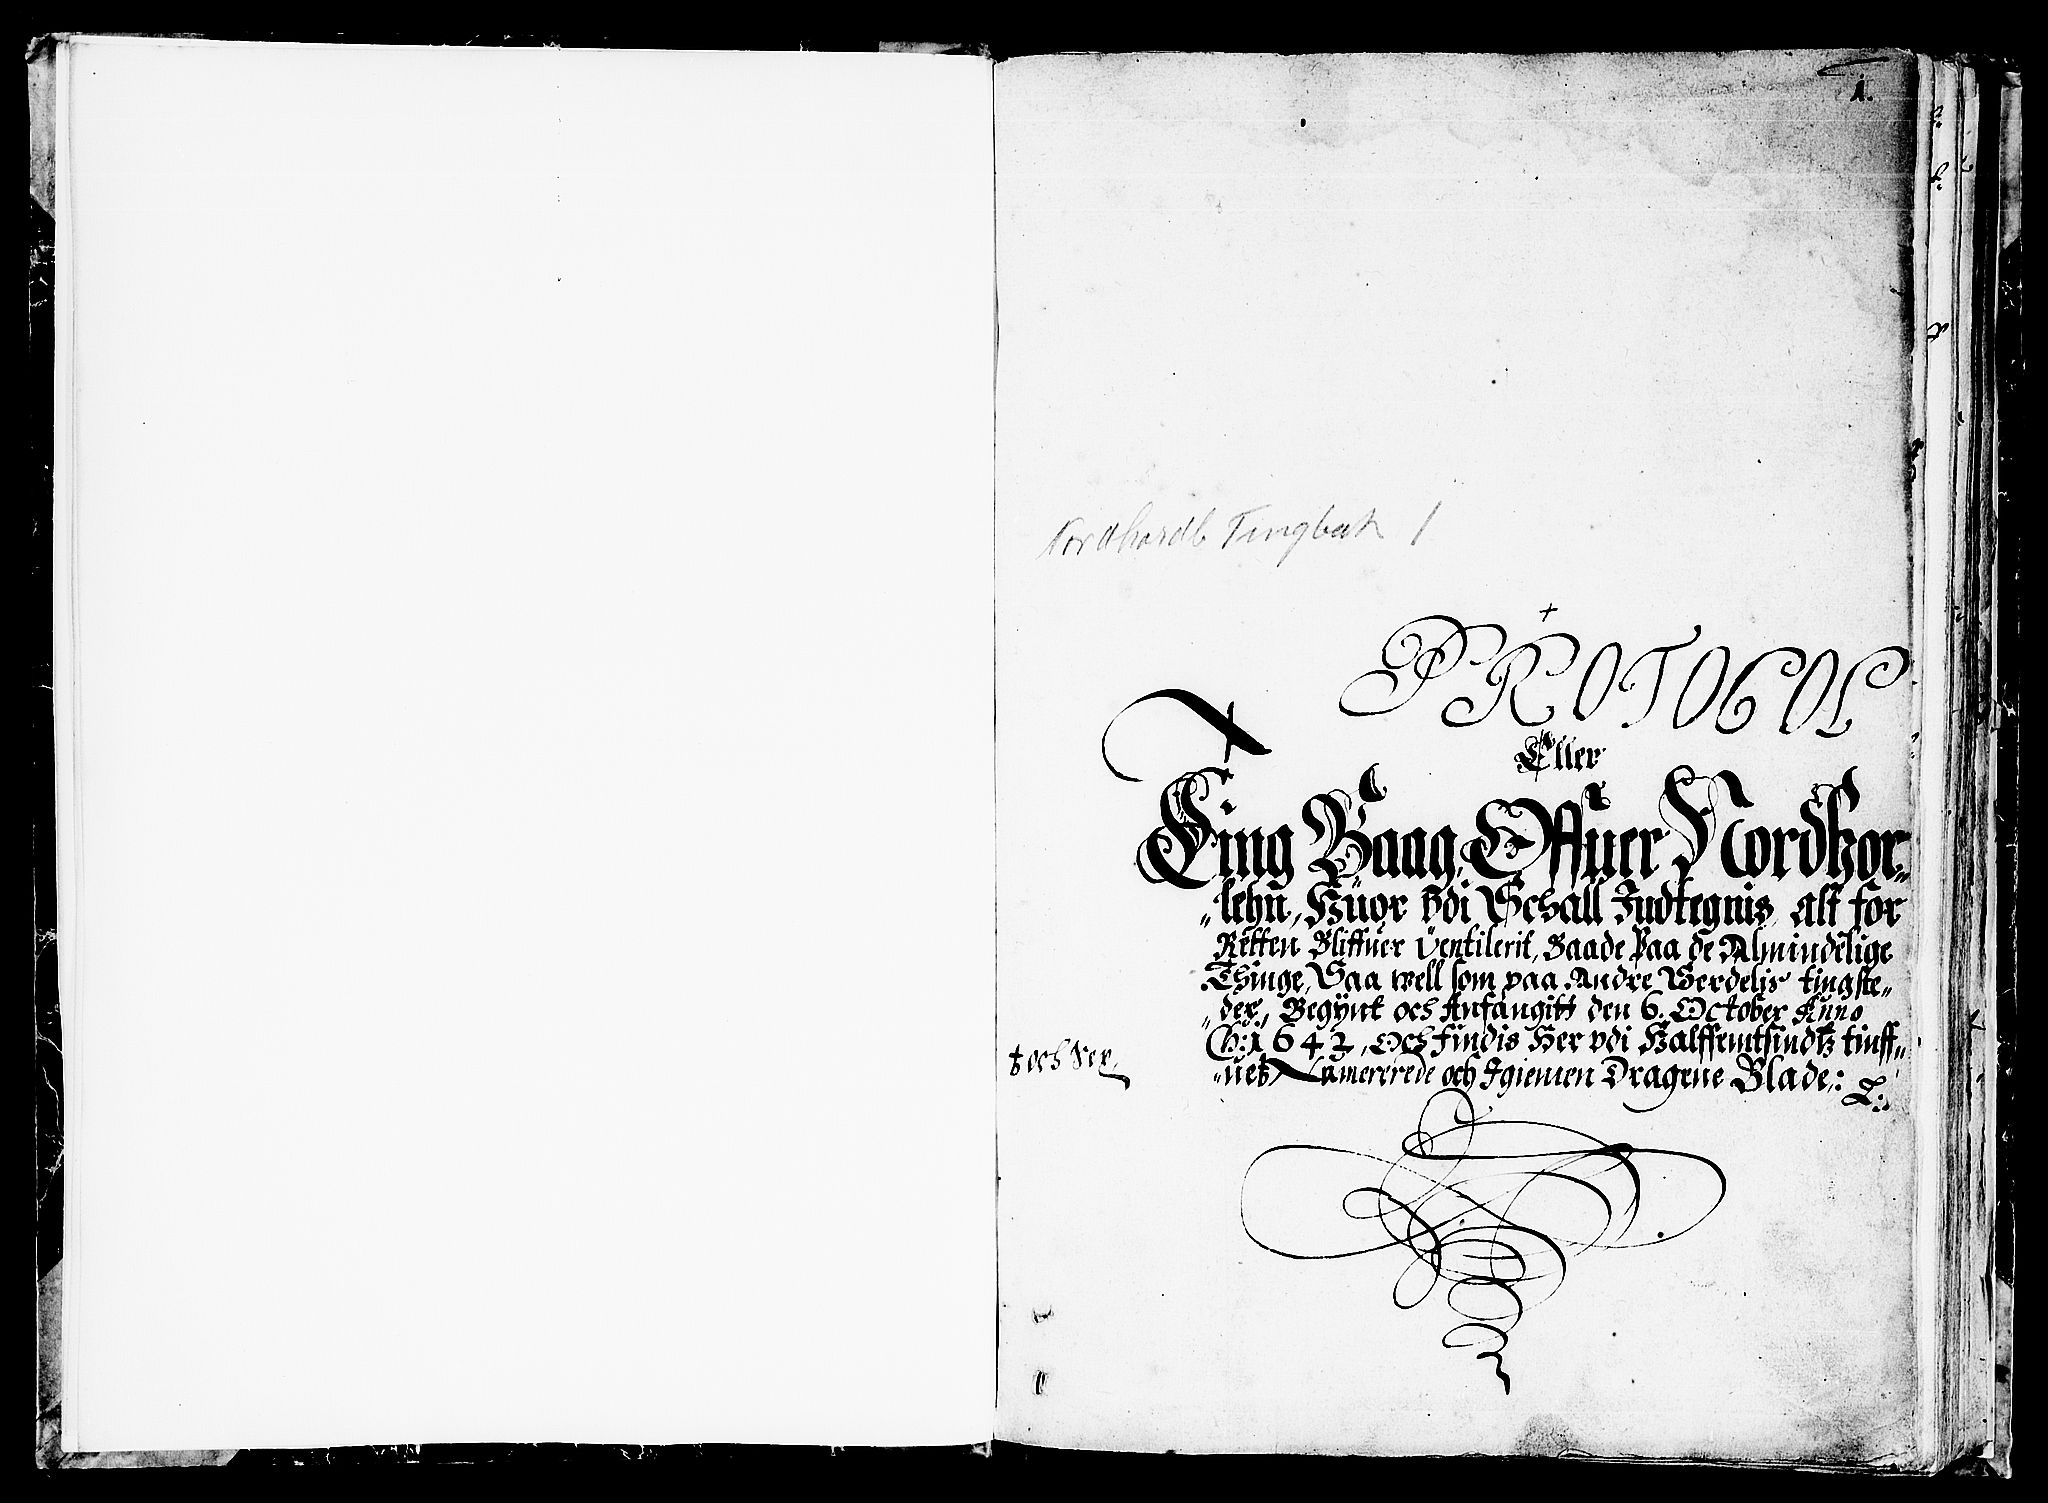 1.
Nordhordl Tingbok 1
PROTOCOL
Eller
Ting Baag, Offuer Nordhor„
„lehn, Huor vdi Schall Indtegnis alt for
Retten Bliffuer Ventilerit, Baade Paa de Almindelige
Thinge, Saa well som paa Andre Werdelis tingste„
„der, Begÿnt och Anfangitt den 6. October Anno
Ch: 1642, Och findis Her vdi Halffemtsindtz tiuff„
† och Sex,
„uetz Numererede och Igiemen Dragene Blade,: